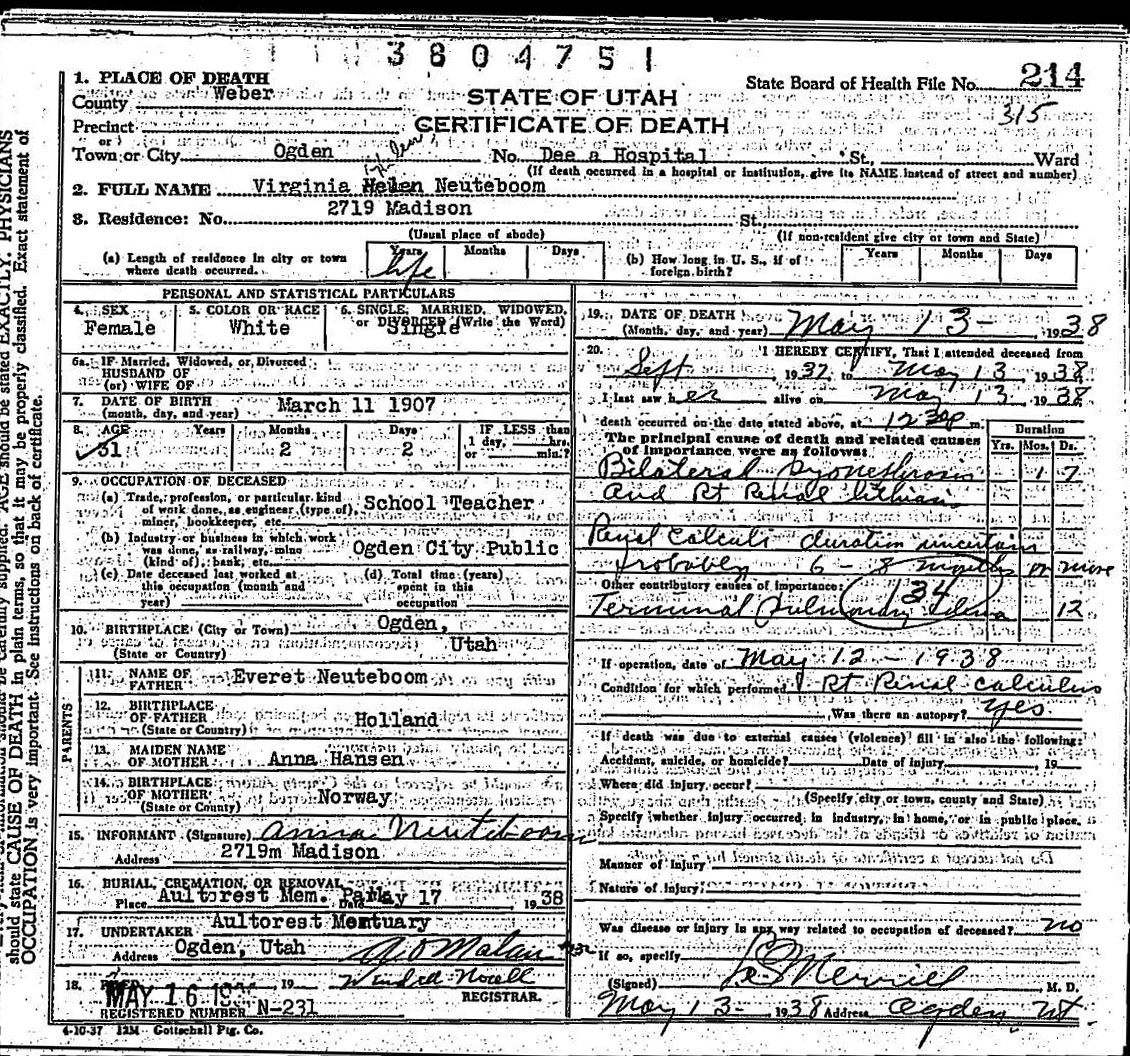 3804751
1. PLACE OF DEATH
State Board of Health File No. 214
County Weber
STATE OF UTAH
315
Precinct
CERTIFICATE OF DEATH
or
Town or City Ogden No. Dee a Hospital St., Ward
(If death occurred in a hospital or institution, give its NAME instead of street and number)
2. FULL NAME Virginia Helen Neuteboom
3. Residence: No. 2719 Madison St.
(Usual place of abode) (If non-resident give city or town and State)
(a) Length of residence in city or town where death occurred. Years life Months Days
(b) How long in U. S., if of foreign birth? Years Months Days
PERSONAL AND STATISTICAL PARTICULARS
4. SEX Female
5. COLOR OR RACE White
6. SINGLE, MARRIED, WIDOWED, or DIVORCED (Write the Word) Single
6a. IF Married, Widowed, or Divorced
HUSBAND OF
(or) WIFE OF
7. DATE OF BIRTH March 11 1907
(month, day, and year)
8. AGE 31 Years 2 Months 2 Days
IF LESS than 1 day, hrs. or min.?
9. OCCUPATION OF DECEASED
(a) Trade, profession, or particular kind of work done, as engineer (type of), miner, bookkeeper, etc. School Teacher
(b) Industry or business in which work was done, as railway, mine (kind of), bank, etc. Ogden City Public
(c) Date deceased last worked at this occupation (month and year)
(d) Total time (years) spent in this occupation
10. BIRTHPLACE (City or Town) Ogden,
(State or Country) Utah
PARENTS
11. NAME OF FATHER Everet Neuteboom
12. BIRTHPLACE OF FATHER Holland
(State or Country)
13. MAIDEN NAME OF MOTHER Anna Hansen
14. BIRTHPLACE OF MOTHER Norway
(State or County)
15. INFORMANT (Signature) Anna Neuteboom
Address 2719m Madison
16. BURIAL, CREMATION, OR REMOVAL
Place Aultorest Mem. Pa Date May 17 1938
17. UNDERTAKER Aultorest Mentuary
Address Ogden, Utah
18. MAY 16 19
REGISTRAR.
REGISTERED NUMBER N-231
4-10-37 12M Gottschall Ptg. Co.
19. DATE OF DEATH (Month, day, and year) May 13- 1938
20. I HEREBY CERTIFY, That I attended deceased from
Sept 1937 to May 13 1938
I last saw her alive on May 13 1938
death occurred on the date stated above, at 12 30p m.
The principal cause of death and related causes of importance were as follows:
Duration Yrs. Mos. Ds.
Bilateral pyonephrosis 1 7
and Rt Renal lithiasis
Renal Calculi duration uncertain
probably 6 - 8 months or more
Other contributory causes of importance: 134
Terminal pulmonary edema 12
If operation, date of May 12 - 1938
Condition for which performed Rt Renal Calculus
Was there an autopsy? Yes
If death was due to external causes (violence) fill in also the following:
Accident, suicide, or homicide? Date of injury 19
Where did injury occur?
(Specify city or town, county and State)
Specify whether injury occurred in industry, in home, or in public place,
Manner of Injury
Nature of injury
Was disease or injury in any way related to occupation of deceased? no
If so, specify
(Signed) Merrill M. D.
May 13- 1938 Address Ogden Ut
should state CAUSE OF DEATH in plain terms, so that it may be properly classified. Exact statement of
OCCUPATION is very important. See instructions on back of certificate.